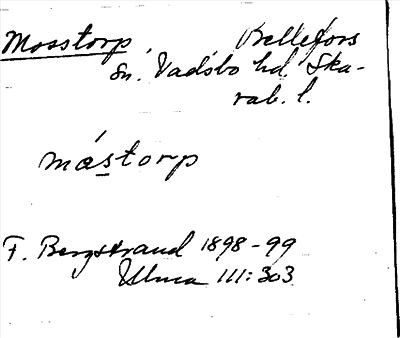 Mosstorp, Bellefors
Sn. Vadsbo hd. Ska-
rab. l.
måstorp
F. Bergstrand 1898-99
Ulma 111:303